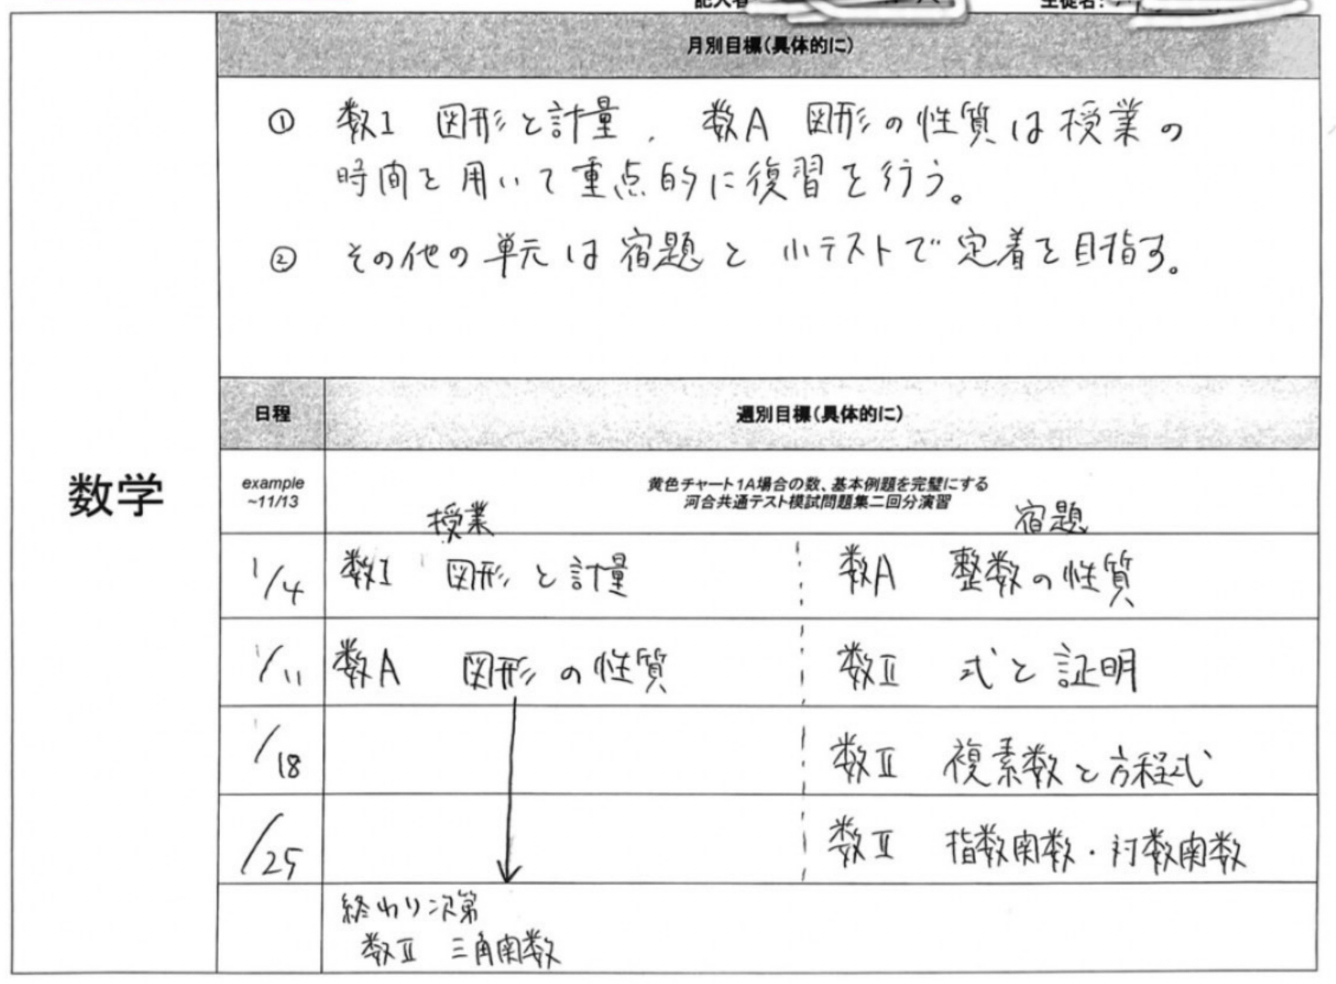 記入者
生徒名:
月別目標(具体的に)
① 数I 図形と計量, 数A 図形の性質は授業の
時間を用いて重点的に復習を行う。
② その他の単元は宿題と小テストで定着を目指す。
数学
日程 週別目標(具体的に)
example
~11/13
黄色チャート1A場合の数、基本例題を完璧にする
河合共通テスト模試問題集二回分演習
授業 宿題
1/4 数I 図形と計量 数A 整数の性質
1/11 数A 図形の性質 数II 式と証明
1/18 数II 複素数と方程式
/25 数II 指数関数・対数関数
終わり次第
数II 三角関数